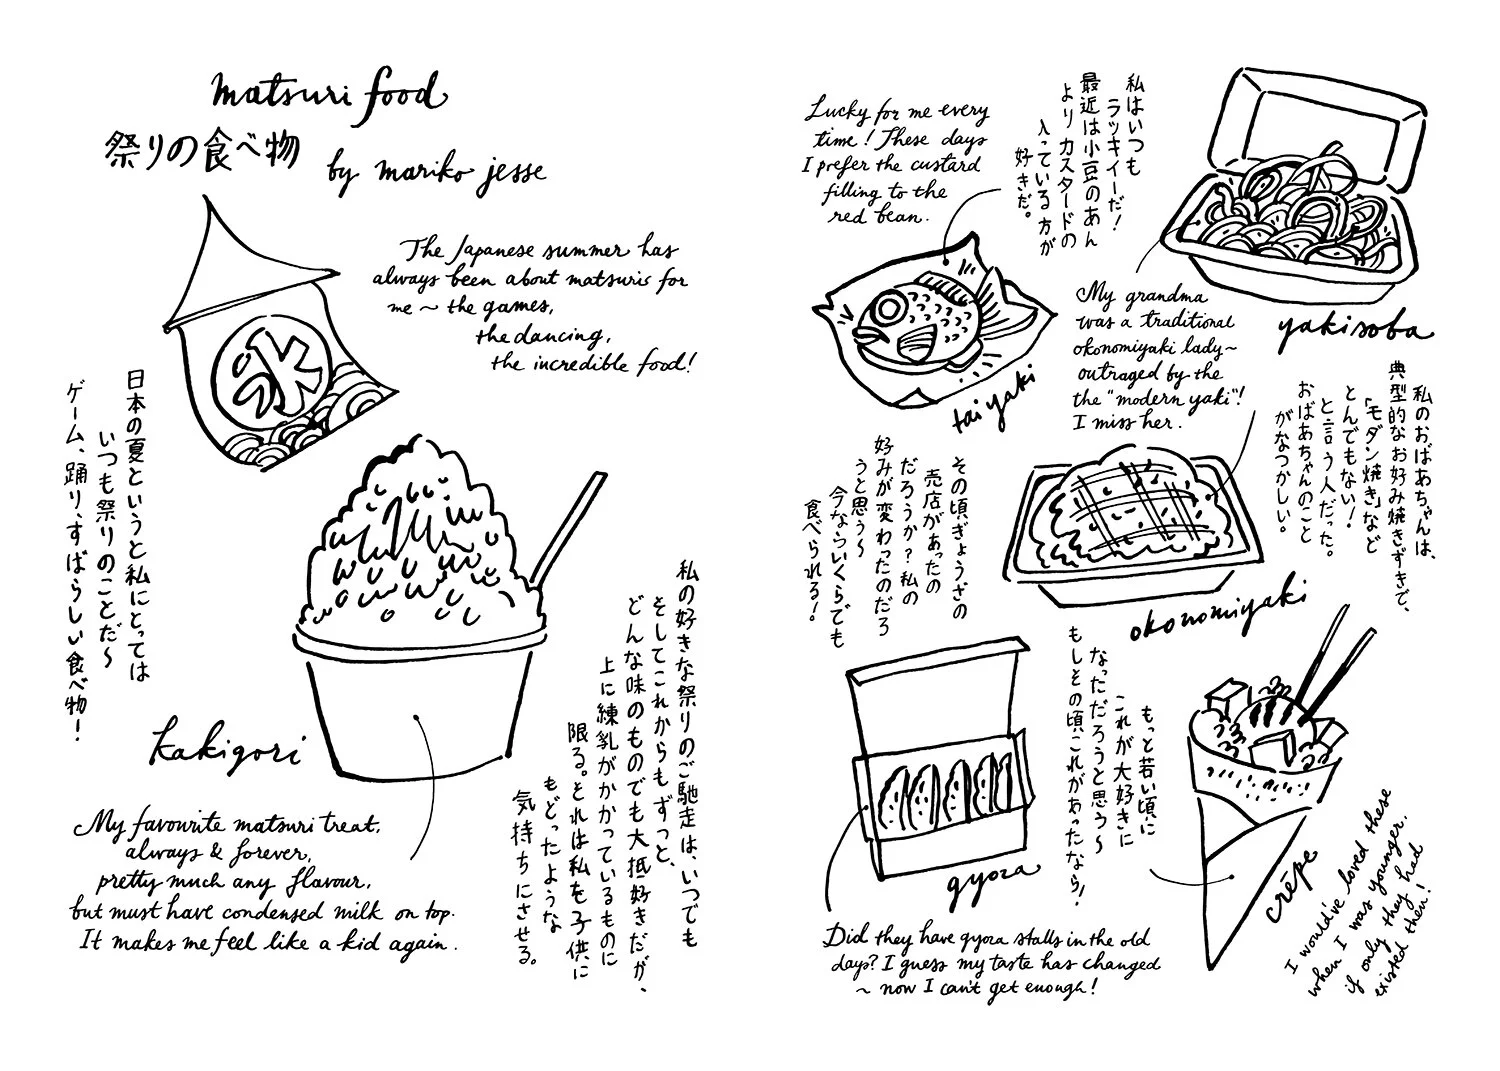 matsuri food
祭りの食べ物
by mariko jesse
The Japanese summer has
always been about matsuris for
me ~ the games,
the dancing,
the incredible food!
氷
日本の夏というと私にとっては
いつも祭りのことだ〜
ゲーム、踊り、すばらしい食べ物!
kakigori
My favourite matsuri treat,
always & forever,
pretty much any flavour,
but must have condensed milk on top.
It makes me feel like a kid again.
私の好きな祭りのご馳走は、いつでも
そしてこれからもずっと、
どんな味のものでも大抵好きだが、
上に練乳がかかっているものに
限る。それは私を子供に
もどったような
気持ちにさせる。
Lucky for me every
time! These days
I prefer the custard
filling to the
red bean.
私はいつも
ラッキイーだ!
最近は小豆のあん
より カスタードの
入っている方が
好きだ。
taiyaki
yakisoba
My grandma
was a traditional
okonomiyaki lady~
outraged by the
the "modern yaki"!
I miss her.
私のおばあちゃんは、
典型的なお好み焼きずきで、
「モダン焼き」など
とんでもない!
と言う人だった。
おばあちゃんのこと
がなつかしい。
okonomiyaki
その頃ぎょうざの
売店があったの
だろうか?私の
好みが変わったのだろ
うと思う〜
今ならいくらでも
食べられる!
gyoza
Did they have gyoza stalls in the old
days? I guess my taste has changed
~ now I can't get enough!
もっと若い頃に
これが大好きに
なっただろうと思う〜
もしその頃これがあったなら!
crêpe
I would've loved these
when I was younger,
if only they had
existed then!